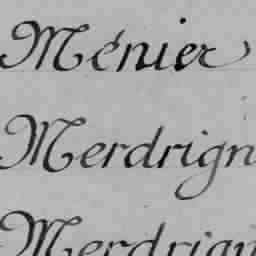 Ménier
Merdrign
Merdrign